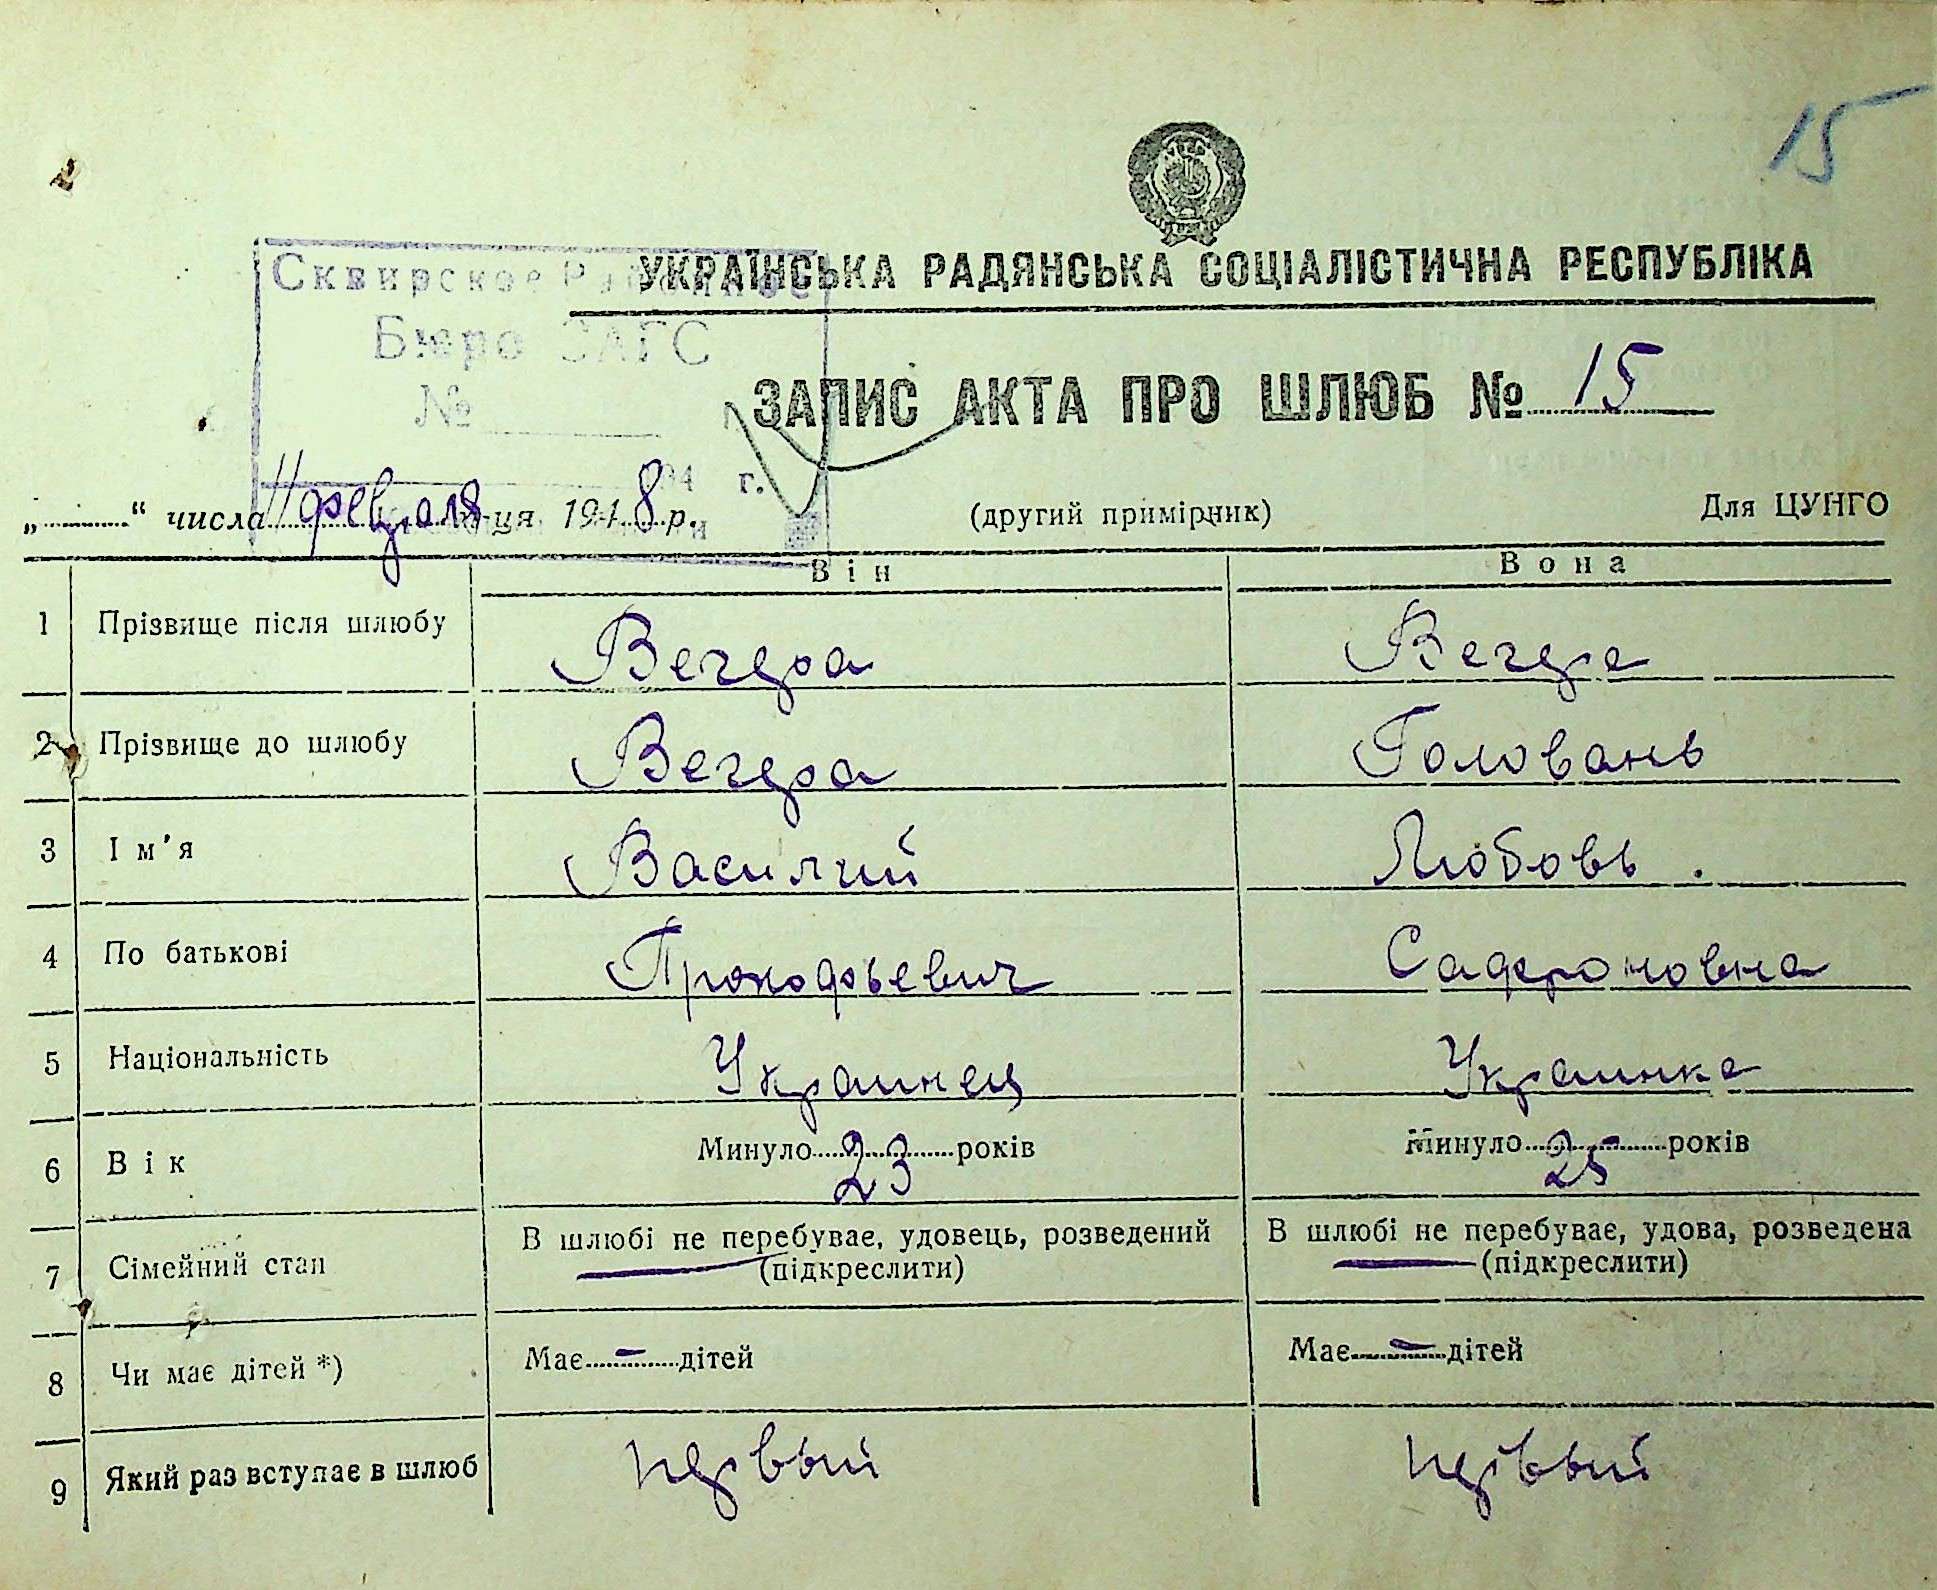 15
УКРАЇНСЬКА РАДЯНСЬКА СОЦІАЛІСТИЧНА РЕСПУБЛІКА
Сквирское Районное
Бюро ЗАГС
№
194 г.
ЗАПИС АКТА ПРО ШЛЮБ № 15
„ “ числа 11 февраля ця 1948 р.
(другий примірник)
Для ЦУНГО
Він Вона
1 Прізвище після шлюбу Вечера Вечера
2 Прізвище до шлюбу Вечера Головань
3 Ім'я Василий Любовь.
4 По батькові Прокофьевич Сафроновна
5 Національність Украинец Украинка
6 Вік Минуло 23 років Минуло 25 років
7 Сімейний стан В шлюбі не перебуває, удовець, розведений (підкреслити) В шлюбі не перебуває, удова, розведена (підкреслити)
8 Чи має дітей *) Має - дітей Має - дітей
9 Який раз вступає в шлюб первый первый